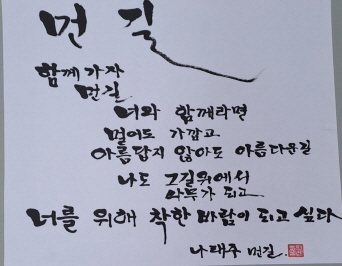 먼 길
함께 가자
먼길
너와 함께라면
멀어도 가깝고
아름답지 않아도 아름다운길
나도 그길위에서
나무가 되고
너를 위해 착한 바람이 되고 싶다
나태주 먼길.